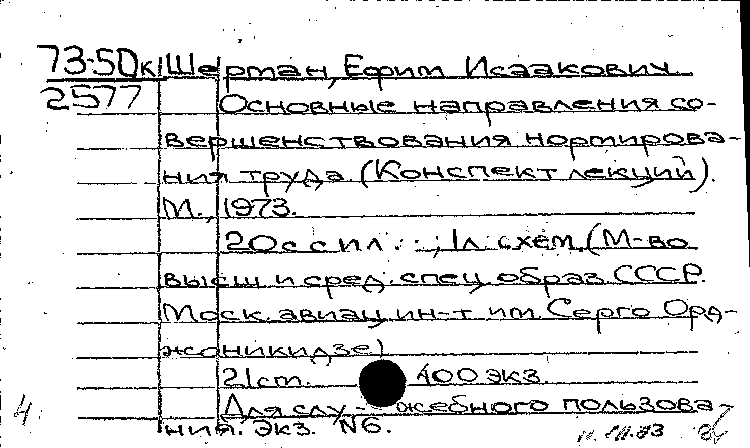 73-50к Шерман, Ефим Исаакович
2577 Основные направления со-
вершенствования нормирова-
ния труда (Конспект лекций).
М., 1973.
20с с ил.; 1л. схем. (М-во
высш и сред. спец. образ. СССР.
Моск. авиац. ин-т им. Серго Орд-
жоникидзе)
21см. 400 экз.
Для слу-жебного пользова-
4. ния. Экз. №6.